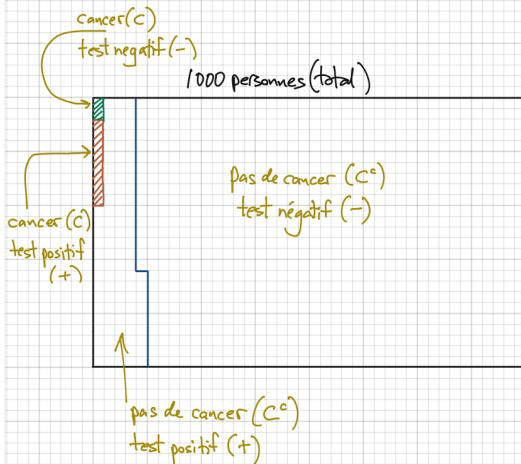 cancer(C)
test negatif (-)
1000 personnes (total)
pas de cancer (Cᶜ)
test négatif (-)
cancer (C)
test positif
(+)
pas de cancer (Cᶜ)
test positif (+)